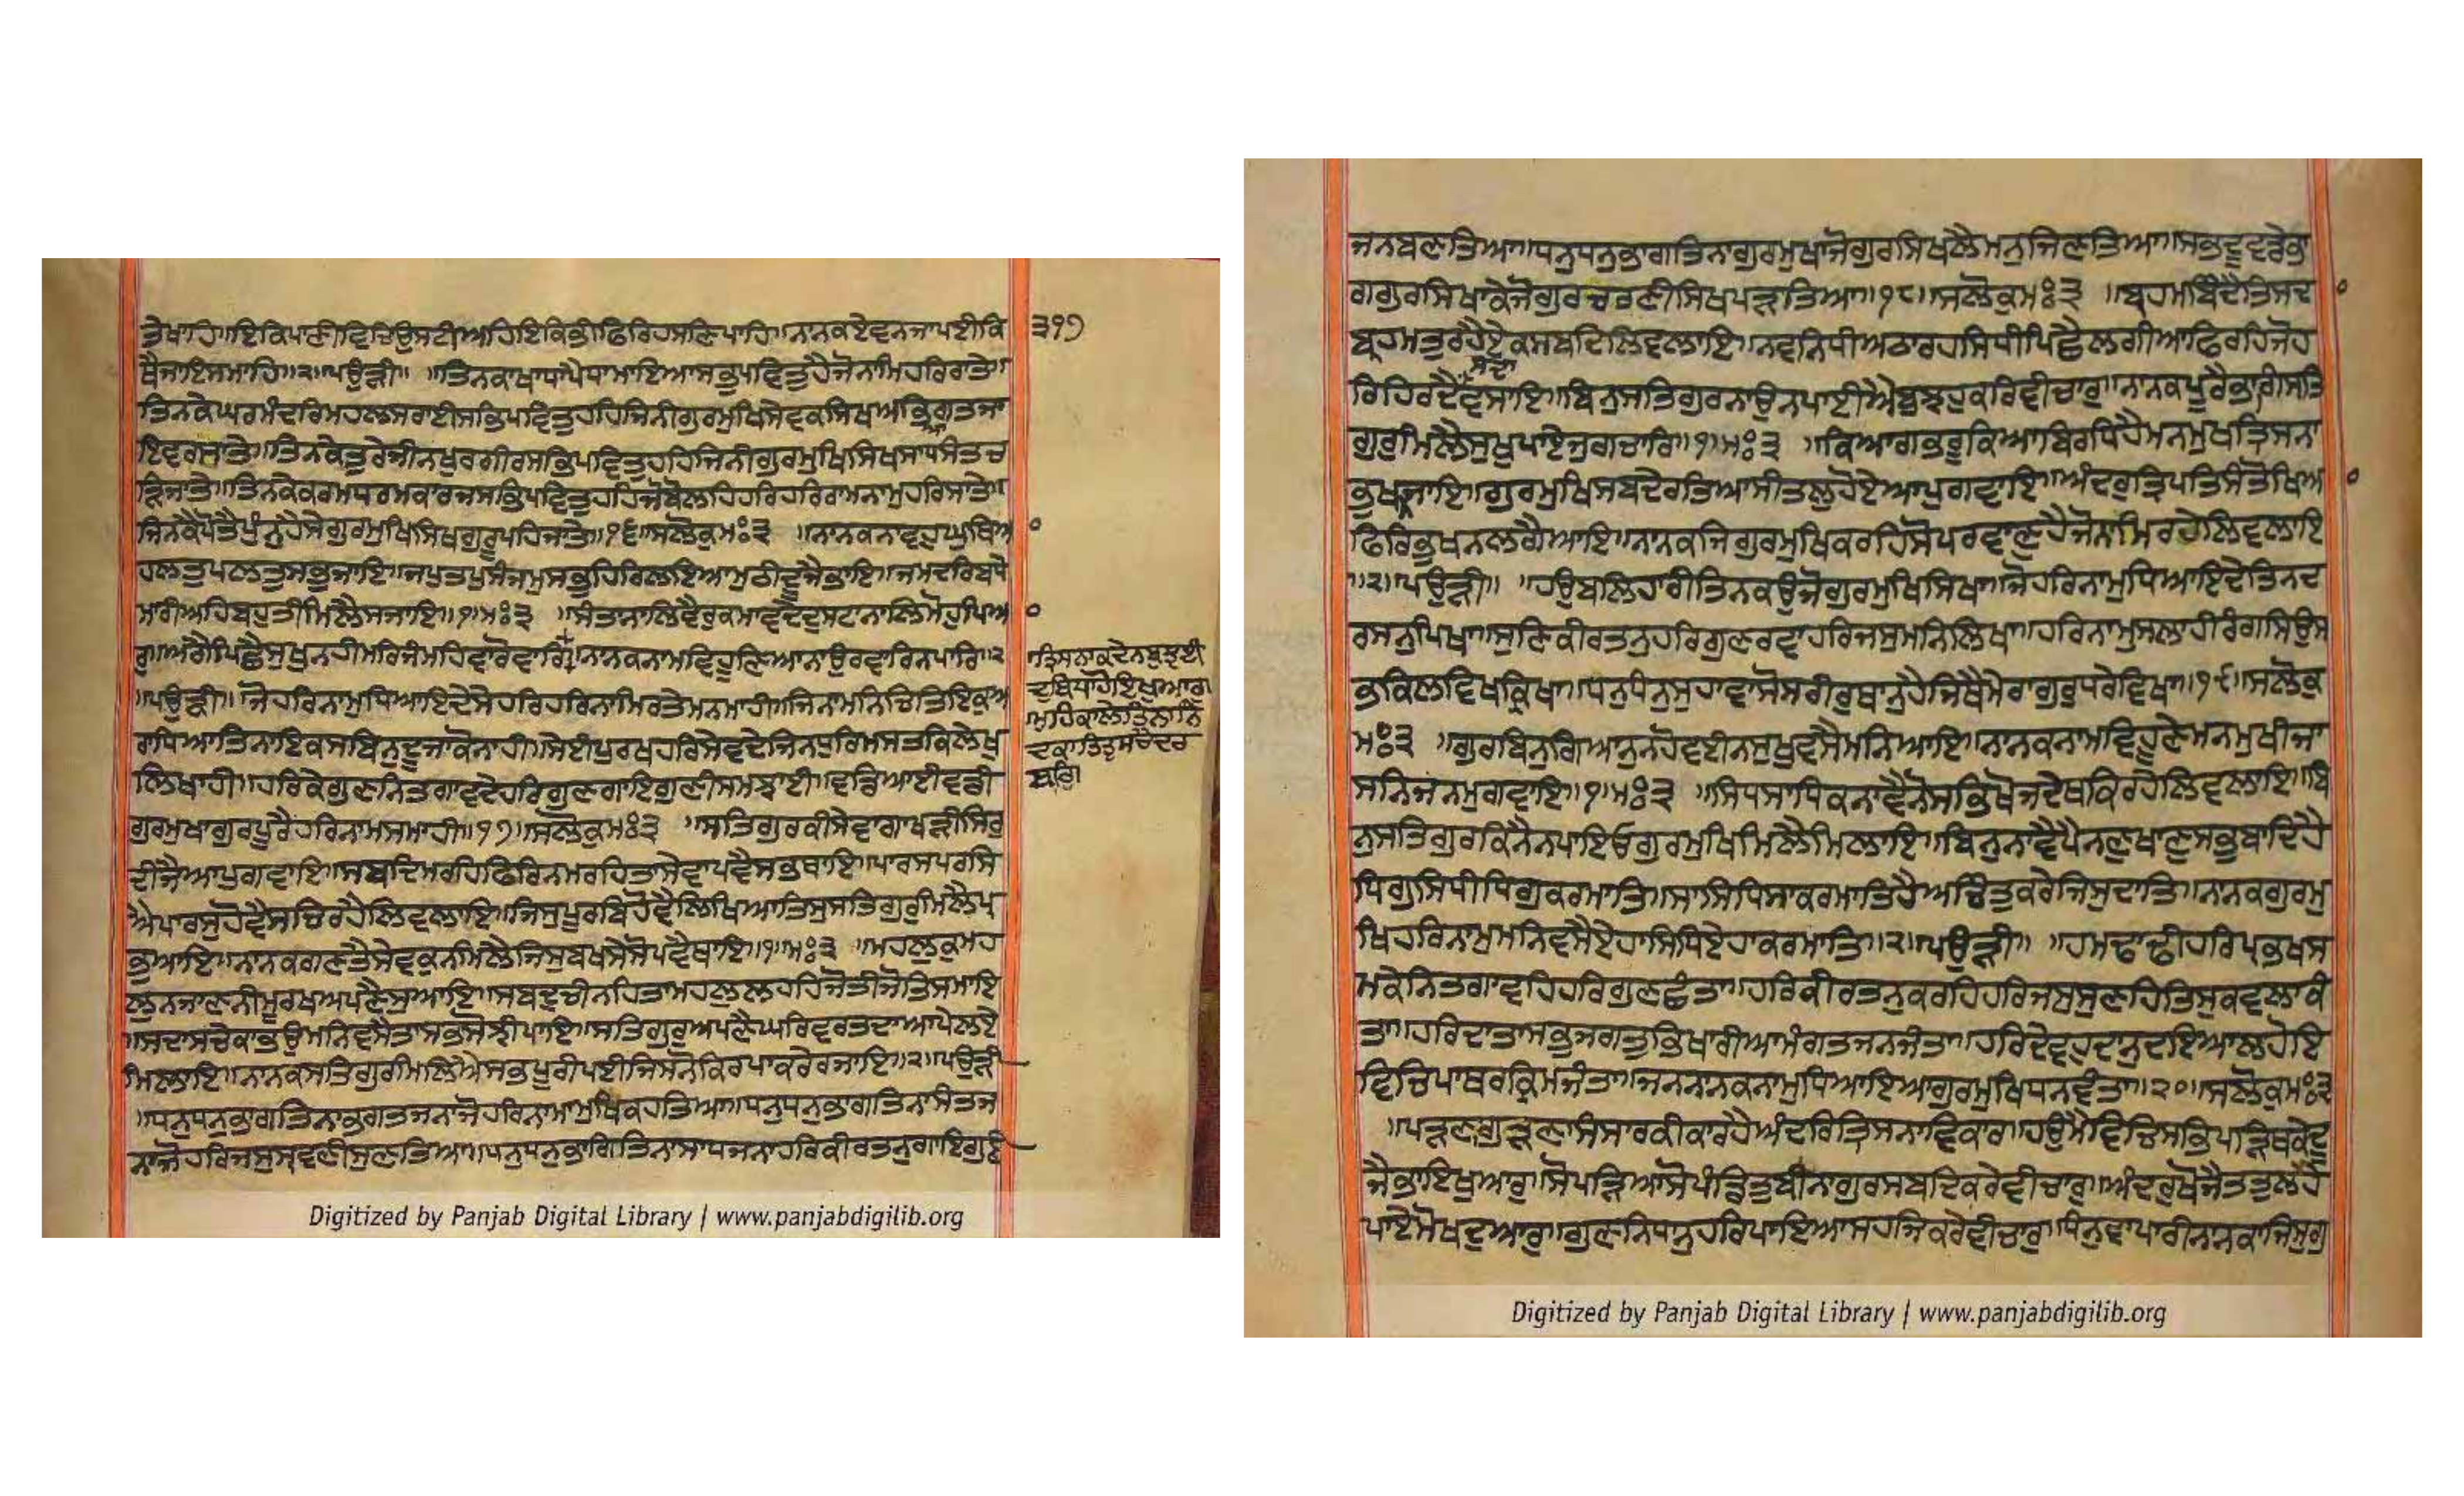 ਤੇਖਾਹਿ॥ਇਕਿਪਾਣੀਵਿਚਿਉਸਟੀਅਹਿਇਕਿਭੀਫਿਰਿਹਸਣਿਪਾਹਿ॥ਨਾਨਕਏਵਨਜਾਪਈਕਿ ੩੧੭
ਥੈਜਾਇਸਮਾਹਿ॥੨॥ਪਉੜੀ॥ ॥ਤਿਨਕਾਖਾਧਾਪੈਧਾਮਾਇਆਸਭੁਪਵਿਤੁਹੈਜੋਨਾਮਿਹਰਿਰਾਤੇ॥
ਤਿਨਕੇਘਰਮੰਦਰਿਮਹਲਸਰਾਈਸਭਿਪਵਿਤੁਹਹਿਜਿਨੀਗੁਰਮੁਖਿਸੇਵਕਸਿਖਅਭਿਆਗਤਜਾ
ਇਵਰਸਾਤੇ॥ਤਿਨਕੇਤੁਰੇਜੀਨਖੁਰਗੀਰਸਭਿਪਵਿਤੁਹਹਿਜਿਨੀਗੁਰਮੁਖਿਸਿਖਸਾਧਸੰਤਚ
ੜਿਜਾਤੇ॥ਤਿਨਕੇਕਰਮਧਰਮਕਾਰਜਸਭਿਪਵਿਤੁਹਹਿਜੋਬੋਲਹਿਹਰਿਹਰਿਰਾਮਨਾਮੁਹਰਿਸਾਤੇ॥
ਜਿਨਕੈਪੋਤੈਪੁੰਨੁਹੈਸੇਗੁਰਮੁਖਿਸਿਖਗੁਰੂਪਹਿਜਾਤੇ॥੧੬॥ਸਲੋਕੁਮਃ੩ ॥ਨਾਨਕਨਾਵਹੁਘੁਥਿਆ
ਹਲਤੁਪਲਤੁਸਭੁਜਾਇ॥ਜਪੁਤਪੁਸੰਜਮੁਸਭੁਹਿਰਿਲਇਆਮੁਠੀਦੂਜੈਭਾਇ॥ਜਮਦਰਿਬਧੇ
ਮਾਰੀਅਹਿਬਹੁਤੀਮਿਲੈਸਜਾਇ॥੧॥ਮਃ੩ ॥ਸੰਤਾਨਾਲਿਵੈਰੁਕਮਾਵਦੇਦੁਸਟਾਨਾਲਿਮੋਹੁਪਿਆ
ਰੁ॥ਅਗੈਪਿਛੈਸੁਖੁਨਹੀਮਰਿਜੰਮਹਿਵਾਰੋਵਾਰ॥ਨਾਨਕਨਾਮਵਿਹੂਣਿਆਨਾਉਰਵਾਰਿਨਪਾਰਿ॥੨
ਤ੍ਰਿਸਨਾਕਦੇਨਬੁਝਈ
ਦੁਬਿਧਾਹੋਇਖੁਆਰੁ॥
ਮੁਹਕਾਲੇਤਿਨਾਨਿੰ
ਦਕਾਤਿਤੁਸਚੈਦਰ
ਬਾਰਿ॥
॥ਪਉੜੀ॥ ਜੋਹਰਿਨਾਮੁਧਿਆਇਦੇਸੇਹਰਿਹਰਿਨਾਮਿਰਤੇਮਨਮਾਹੀ॥ਜਿਨਾਮਨਿਚਿਤਿਇਕੁਅ
ਰਾਧਿਆਤਿਨਾਇਕਸਬਿਨੁਦੂਜਾਕੋਨਾਹੀ॥ਸੇਈਪੁਰਖਹਰਿਸੇਵਦੇਜਿਨਧੁਰਿਮਸਤਕਿਲੇਖੁ
ਲਿਖਾਹੀ॥ਹਰਿਕੇਗੁਣਨਿਤਗਾਵਦੇਹਰਿਗੁਣਗਾਇਗੁਣੀਸਮਝਾਹੀ॥ਵਡਿਆਈਵਡੀ
ਗੁਰਮੁਖਾਗੁਰਪੂਰੈਹਰਿਨਾਮਸਮਾਹੀ॥੧੭॥ਸਲੋਕੁਮਃ੩ ॥ਸਤਿਗੁਰਕੀਸੇਵਾਗਾਖੜੀਸਿਰੁ
ਦੀਜੈਆਪੁਗਵਾਇ॥ਸਬਦਿਮਰਹਿਫਿਰਿਨਮਰਹਿਤਾਸੇਵਾਪਵੈਸਭਥਾਇ॥ਪਾਰਸਪਰਸਿ
ਐਪਾਰਸੁਹੋਵੈਸਚਿਰਹੈਲਿਵਲਾਇ॥ਜਿਸੁਪੂਰਬਿਹੋਵੈਲਿਖਿਆਤਿਸੁਸਤਿਗੁਰੁਮਿਲੈਪ੍ਰ
ਭੁਆਇ॥ਨਾਨਕਗਣਤੈਸੇਵਕੁਨਮਿਲੈਜਿਸੁਬਖਸੇਸੋਪਵੈਥਾਇ॥੧॥ਮਃ੩ ॥ਮਹਲੁਕੁਮਹ
ਲੁਨਜਾਣਨੀਮੂਰਖਅਪਣੈਸੁਆਇ॥ਸਬਦੁਚੀਨਹਿਤਾਮਹਲੁਲਹਹਿਜੋਤੀਜੋਤਿਸਮਾਇ
॥ਸਦਾਸਚੇਕਾਭਉਮਨਿਵਸੈਤਾਸਭਸੋਝੀਪਾਇ॥ਸਤਿਗੁਰੁਅਪਣੈਘਰਿਵਰਤਦਾਆਪੇਲਏ
ਮਿਲਾਇ॥ਨਾਨਕਸਤਿਗੁਰਿਮਿਲਿਐਸਭਪੂਰੀਪਈਜਿਸਨੋਕਿਰਪਾਕਰੇਰਜਾਇ॥੨॥ਪਉੜੀ
॥ਧਨੁਧਨੁਭਾਗਤਿਨਾਭਗਤਜਨਾਜੋਹਰਿਨਾਮਾਮੁਖਿਕਹਤਿਆ॥ਧਨੁਧਨੁਭਾਗਤਿਨਾਸੰਤਜ
ਨਾਜੋਹਰਿਜਸੁਸ੍ਰਵਣੀਸੁਣਤਿਆ॥ਧਨੁਧਨੁਭਾਗਤਿਨਾਸਾਧਜਨਾਹਰਿਕੀਰਤਨੁਗਾਇਗੁਣੀ
Digitized by Panjab Digital Library | www.panjabdigilib.org
ਜਨਬਣਤਿਆ॥ਧਨੁਧਨੁਭਾਗਤਿਨਾਗੁਰਮੁਖਾਜੋਗੁਰਸਿਖਲੈਮਨੁਜਿਣਤਿਆ॥ਸਭਦੂਵਡੇਭਾ
ਗਗੁਰਸਿਖਾਕੇਜੋਗੁਰਚਰਣੀਸਿਖਪੜਤਿਆ॥੧੮॥ਸਲੋਕੁਮਃ੩ ॥ਬ੍ਰਹਮਬਿੰਦੈਤਿਸਦਾ
ਬ੍ਰਹਮਤੁਰਹੈਏਕਸਬਦਿਲਿਵਲਾਇ॥ਨਵਨਿਧੀਅਠਾਰਹਸਿਧੀਪਿਛੈਲਗੀਆਫਿਰਹਿਜੋਹ
ਰਿਹਿਰਦੈਸਦਾਵਸਾਇ॥ਬਿਨੁਸਤਿਗੁਰਨਾਉਨਪਾਈਐਬੁਝਹੁਕਰਿਵੀਚਾਰੁ॥ਨਾਨਕਪੂਰੈਭਾਗਿਸਤਿ
ਗੁਰੁਮਿਲੈਸੁਖੁਪਾਏਜੁਗਚਾਰਿ॥੧॥ਮਃ੩ ॥ਕਿਆਗਭਰੂਕਿਆਬਿਰਧਿਹੈਮਨਮੁਖਤ੍ਰਿਸਨਾ
ਭੁਖਨਜਾਇ॥ਗੁਰਮੁਖਿਸਬਦੇਰਤਿਆਸੀਤਲੁਹੋਏਆਪੁਗਵਾਇ॥ਅੰਦਰੁਤ੍ਰਿਪਤਿਸੰਤੋਖਿਆ
ਫਿਰਿਭੁਖਨਲਗੈਆਇ॥ਨਾਨਕਜਿਗੁਰਮੁਖਿਕਰਹਿਸੋਪਰਵਾਣੁਹੈਜੋਨਾਮਿਰਹੇਲਿਵਲਾਇ
॥੨॥ਪਉੜੀ॥ ॥ਹਉਬਲਿਹਾਰੀਤਿਨਕਉਜੋਗੁਰਮੁਖਿਸਿਖਾ॥ਜੋਹਰਿਨਾਮੁਧਿਆਇਦੇਤਿਨਦ
ਰਸਨੁਪਿਖਾ॥ਸੁਣਿਕੀਰਤਨੁਹਰਿਗੁਣਰਵਾਹਰਿਜਸੁਮਨਿਲਿਖਾ॥ਹਰਿਨਾਮੁਸਲਾਹੀਰੰਗਸਿਉਸ
ਭਕਿਲਵਿਖਕ੍ਰਿਖਾ॥ਧਨੁਧੰਨੁਸੁਹਾਵਾਸੋਸਰੀਰੁਥਾਨੁਹੈਜਿਥੈਮੇਰਾਗੁਰੁਧਰੇਵਿਖਾ॥੧੯॥ਸਲੋਕੁ
ਮਃ੩ ॥ਗੁਰਬਿਨੁਗਿਆਨੁਨਹੋਵਈਨਸੁਖੁਵਸੈਮਨਿਆਇ॥ਨਾਨਕਨਾਮਵਿਹੂਣੇਮਨਮੁਖੀਜਾ
ਸਨਿਜਨਮੁਗਵਾਇ॥੧॥ਮਃ੩ ॥ਸਿਧਸਾਧਿਕਨਾਵੈਨੋਸਭਿਖੋਜਦੇਥਕਿਰਹੇਲਿਵਲਾਇ॥ਬਿ
ਨੁਸਤਿਗੁਰਕਿਨੈਨਪਾਇਓਗੁਰਮੁਖਿਮਿਲੈਮਿਲਾਇ॥ਬਿਨੁਨਾਵੈਪੈਨਣੁਖਾਣੁਸਭੁਬਾਦਿਹੈ
ਧਿਗੁਸਿਧੀਧਿਗੁਕਰਮਾਤਿ॥ਸਾਸਿਧਿਸਾਕਰਮਾਤਿਹੈਅਚਿੰਤੁਕਰੇਜਿਸੁਦਾਤਿ॥ਨਾਨਕਗੁਰਮੁ
ਖਿਹਰਿਨਾਮੁਮਨਿਵਸੈਏਹਾਸਿਧਿਏਹਾਕਰਮਾਤਿ॥੨॥ਪਉੜੀ॥ ॥ਹਮਢਾਢੀਹਰਿਪ੍ਰਭਖਸ
ਮਕੇਨਿਤਗਾਵਹਿਹਰਿਗੁਣਛੰਤਾ॥ਹਰਿਕੀਰਤਨੁਕਰਹਿਹਰਿਜਸੁਸੁਣਹਿਤਿਸੁਕਵਲਾਕੰ
ਤਾ॥ਹਰਿਦਾਤਾਸਭੁਜਗਤੁਭਿਖਾਰੀਆਮੰਗਤਜਨਜੰਤਾ॥ਹਰਿਦੇਵਹੁਦਾਨੁਦਇਆਲਹੋਇ
ਵਿਚਿਪਾਥਰਕ੍ਰਿਮਜੰਤਾ॥ਜਨਨਾਨਕਨਾਮੁਧਿਆਇਆਗੁਰਮੁਖਿਧਨਵੰਤਾ॥੨੦॥ਸਲੋਕੁਮਃ੩
॥ਪੜਣਾਗੁੜਣਾਸੰਸਾਰਕੀਕਾਰਹੈਅੰਦਰਿਤ੍ਰਿਸਨਾਵਿਕਾਰੁ॥ਹਉਮੈਵਿਚਿਸਭਿਪੜਿਥਕੇਦੂ
ਜੈਭਾਇਖੁਆਰੁ॥ਸੋਪੜਿਆਸੋਪੰਡਿਤੁਬੀਨਾਗੁਰਸਬਦਿਕਰੇਵੀਚਾਰੁ॥ਅੰਦਰੁਖੋਜੈਤਤੁਲਹੈ
ਪਾਏਮੋਖਦੁਆਰੁ॥ਗੁਣਨਿਧਾਨੁਹਰਿਪਾਇਆਸਹਜਿਕਰੇਵੀਚਾਰੁ॥ਧੰਨੁਵਾਪਾਰੀਨਾਨਕਾਜਿਸੁਗੁ
Digitized by Panjab Digital Library | www.panjabdigilib.org